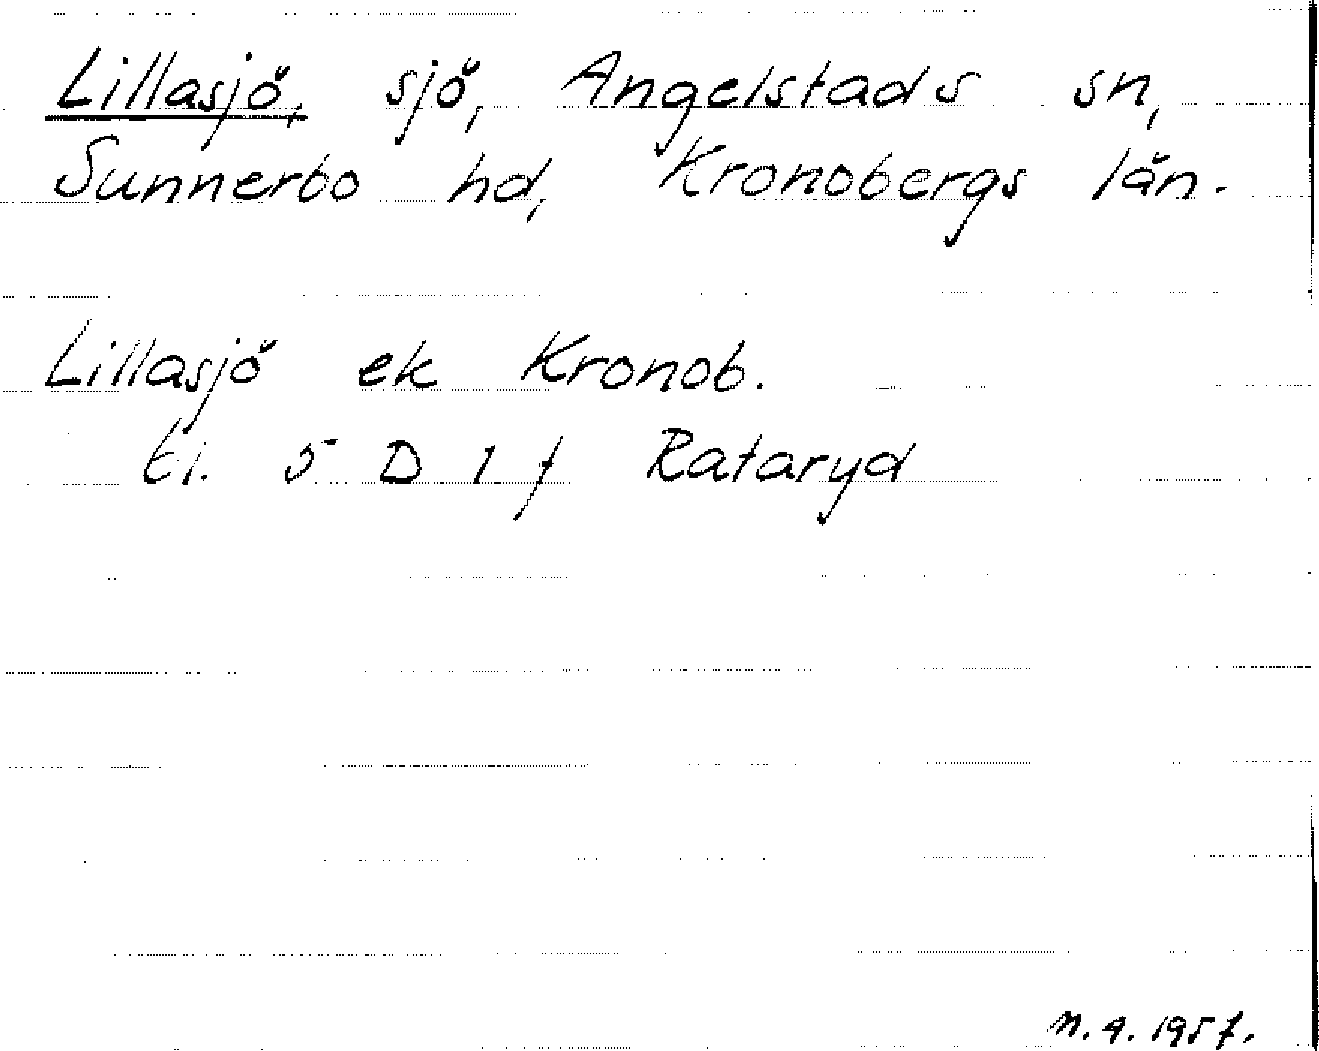 Lillasjö, sjö, Angelstads sn,
Sunnerbo hd, Kronobergs län.
Lillasjö ek Kronob.
bl. 5 D 1 f Rataryd
n. a. 1957.